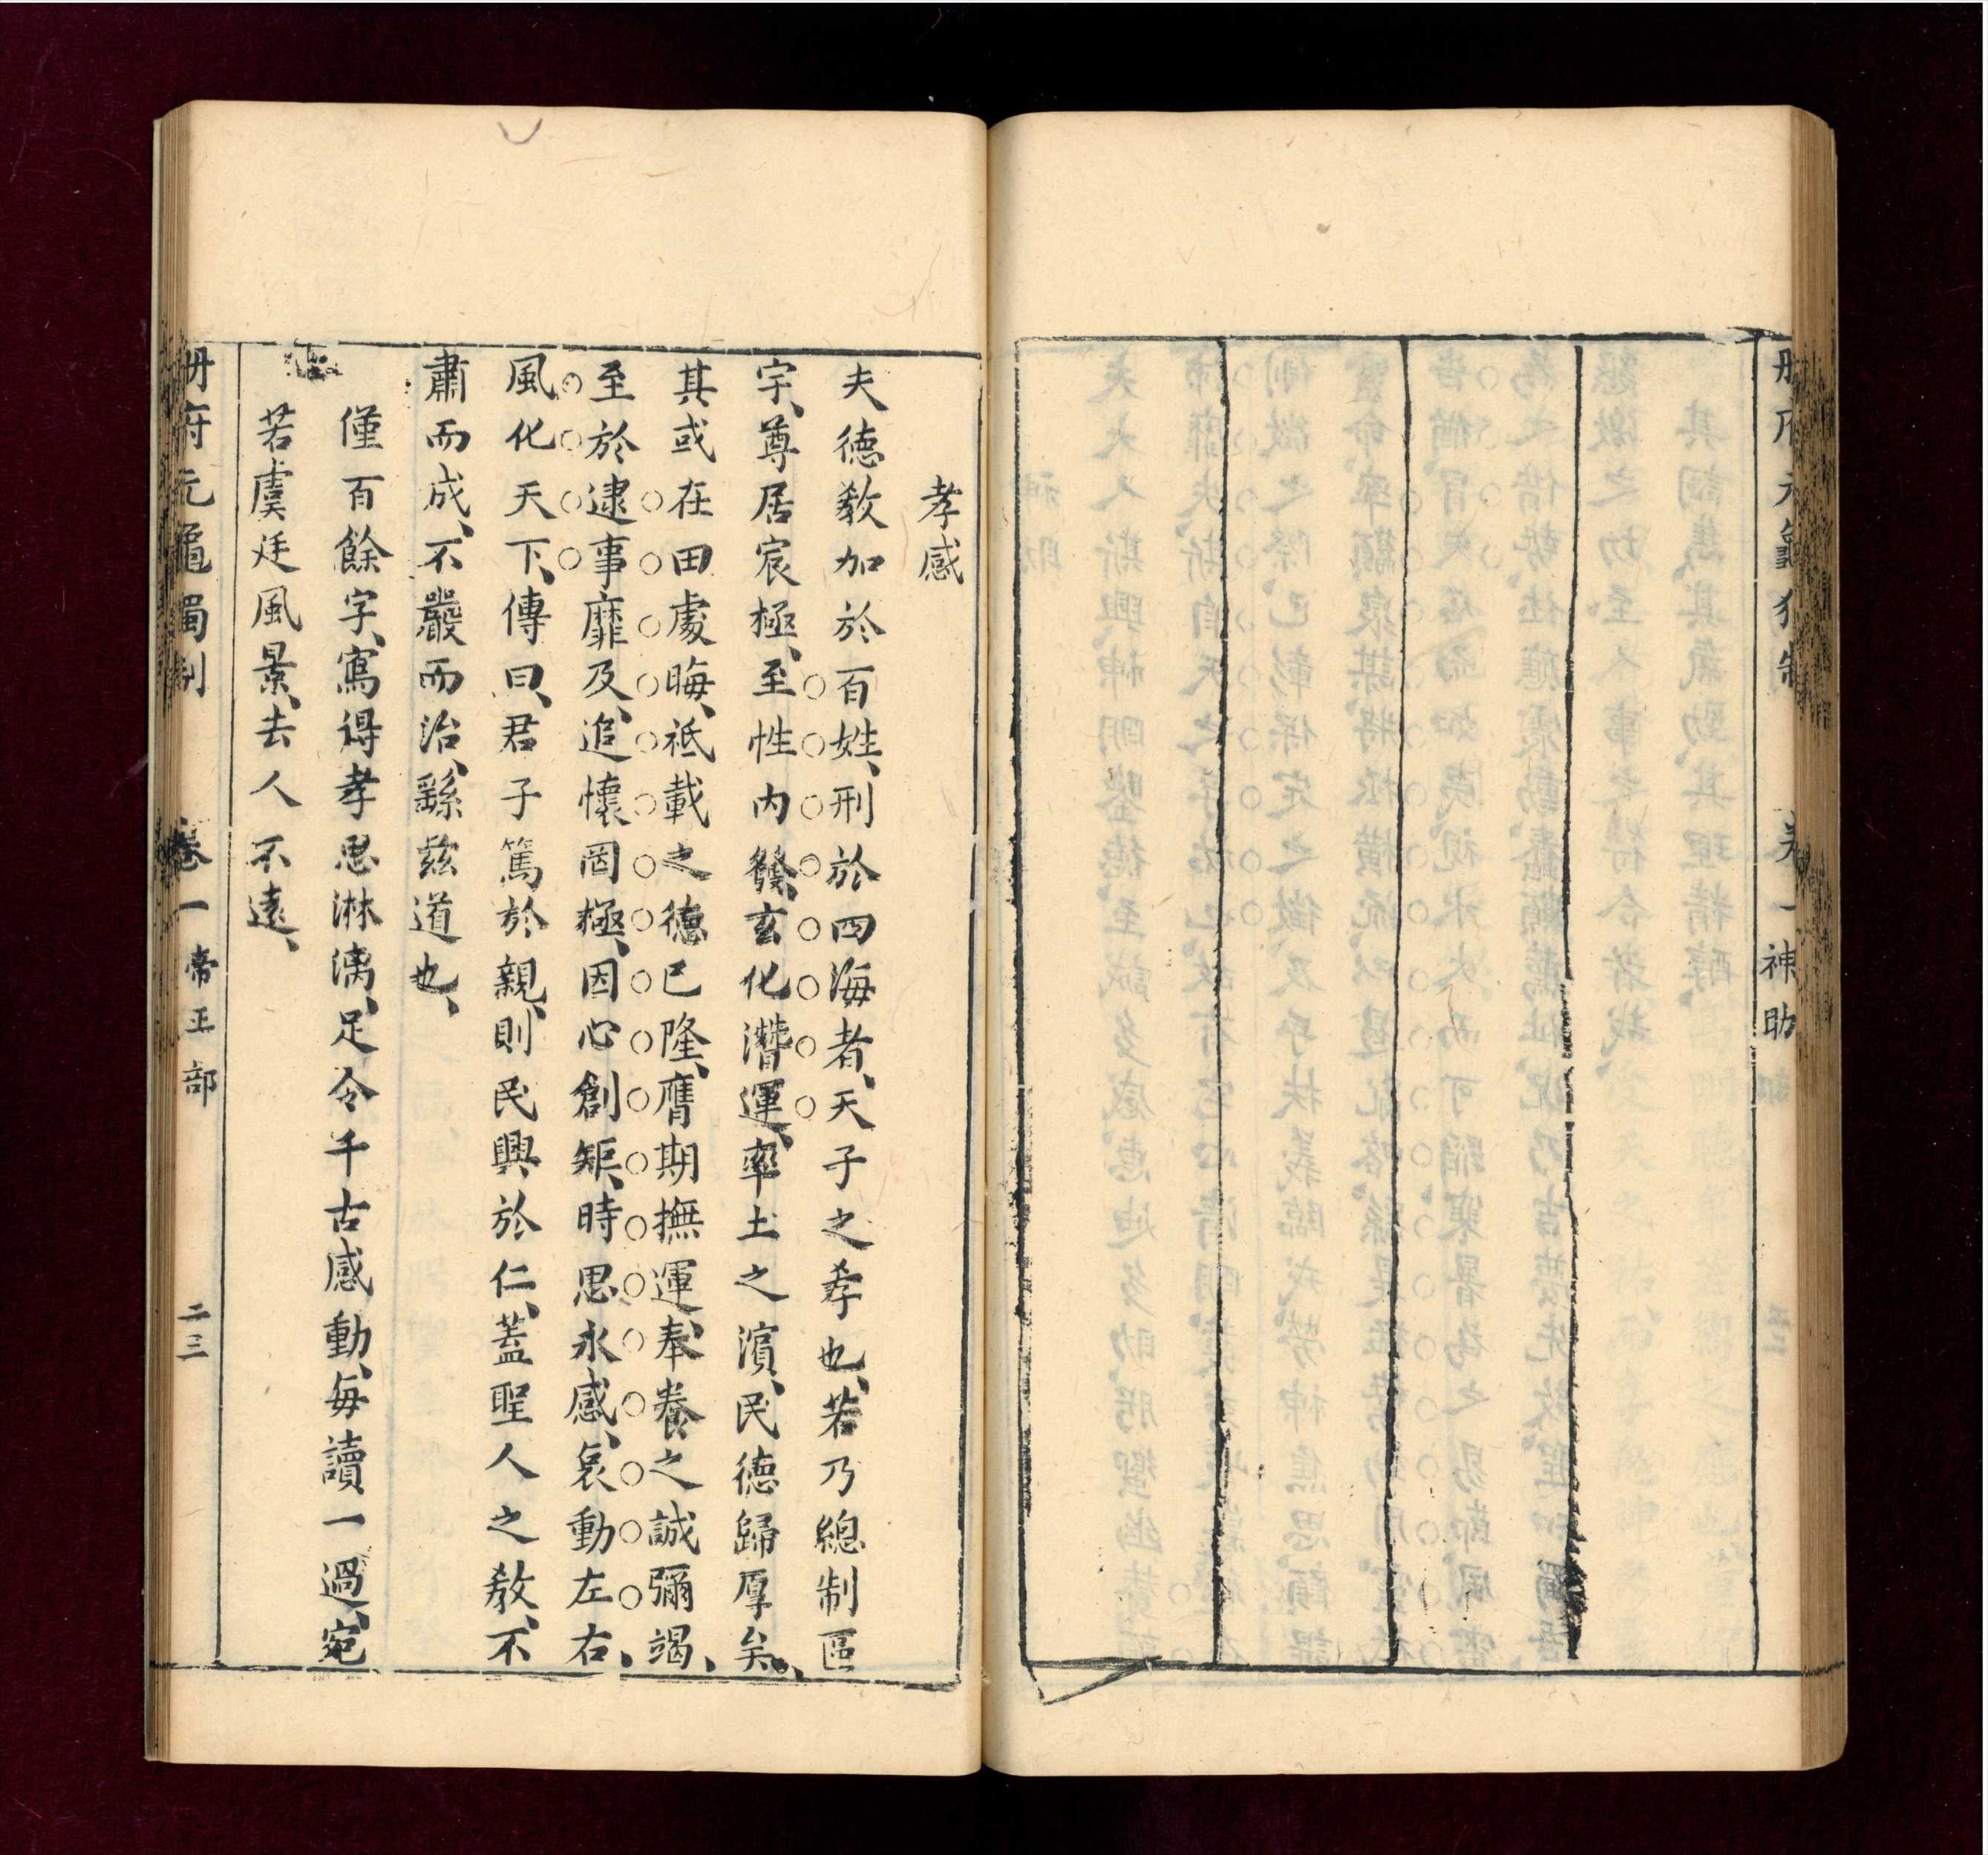 冊府元龜獨制
卷一
神助
孝感
夫德敎加於百姓、刑於四海者、天子之孝也、若乃總制區
宇、尊居宸極、至性內發、玄化濳運、率土之濵、民德歸厚矣、
其或在田處晦、祇載之德已隆、膺期撫運、奉養之誠彌竭、
至於逮事靡及、追懷罔極、因心創矩、時思永感、哀動左右、
風化天下、傳曰、君子篤於親、則民興於仁、蓋聖人之敎、不
肅而成、不嚴而治、繇兹道也、
僅百餘字、寫得孝思淋漓、足令千古感動、每讀一過、宛
若虞廷風景、去人不遠、
冊府元龜獨制
卷一
帝王部
二三